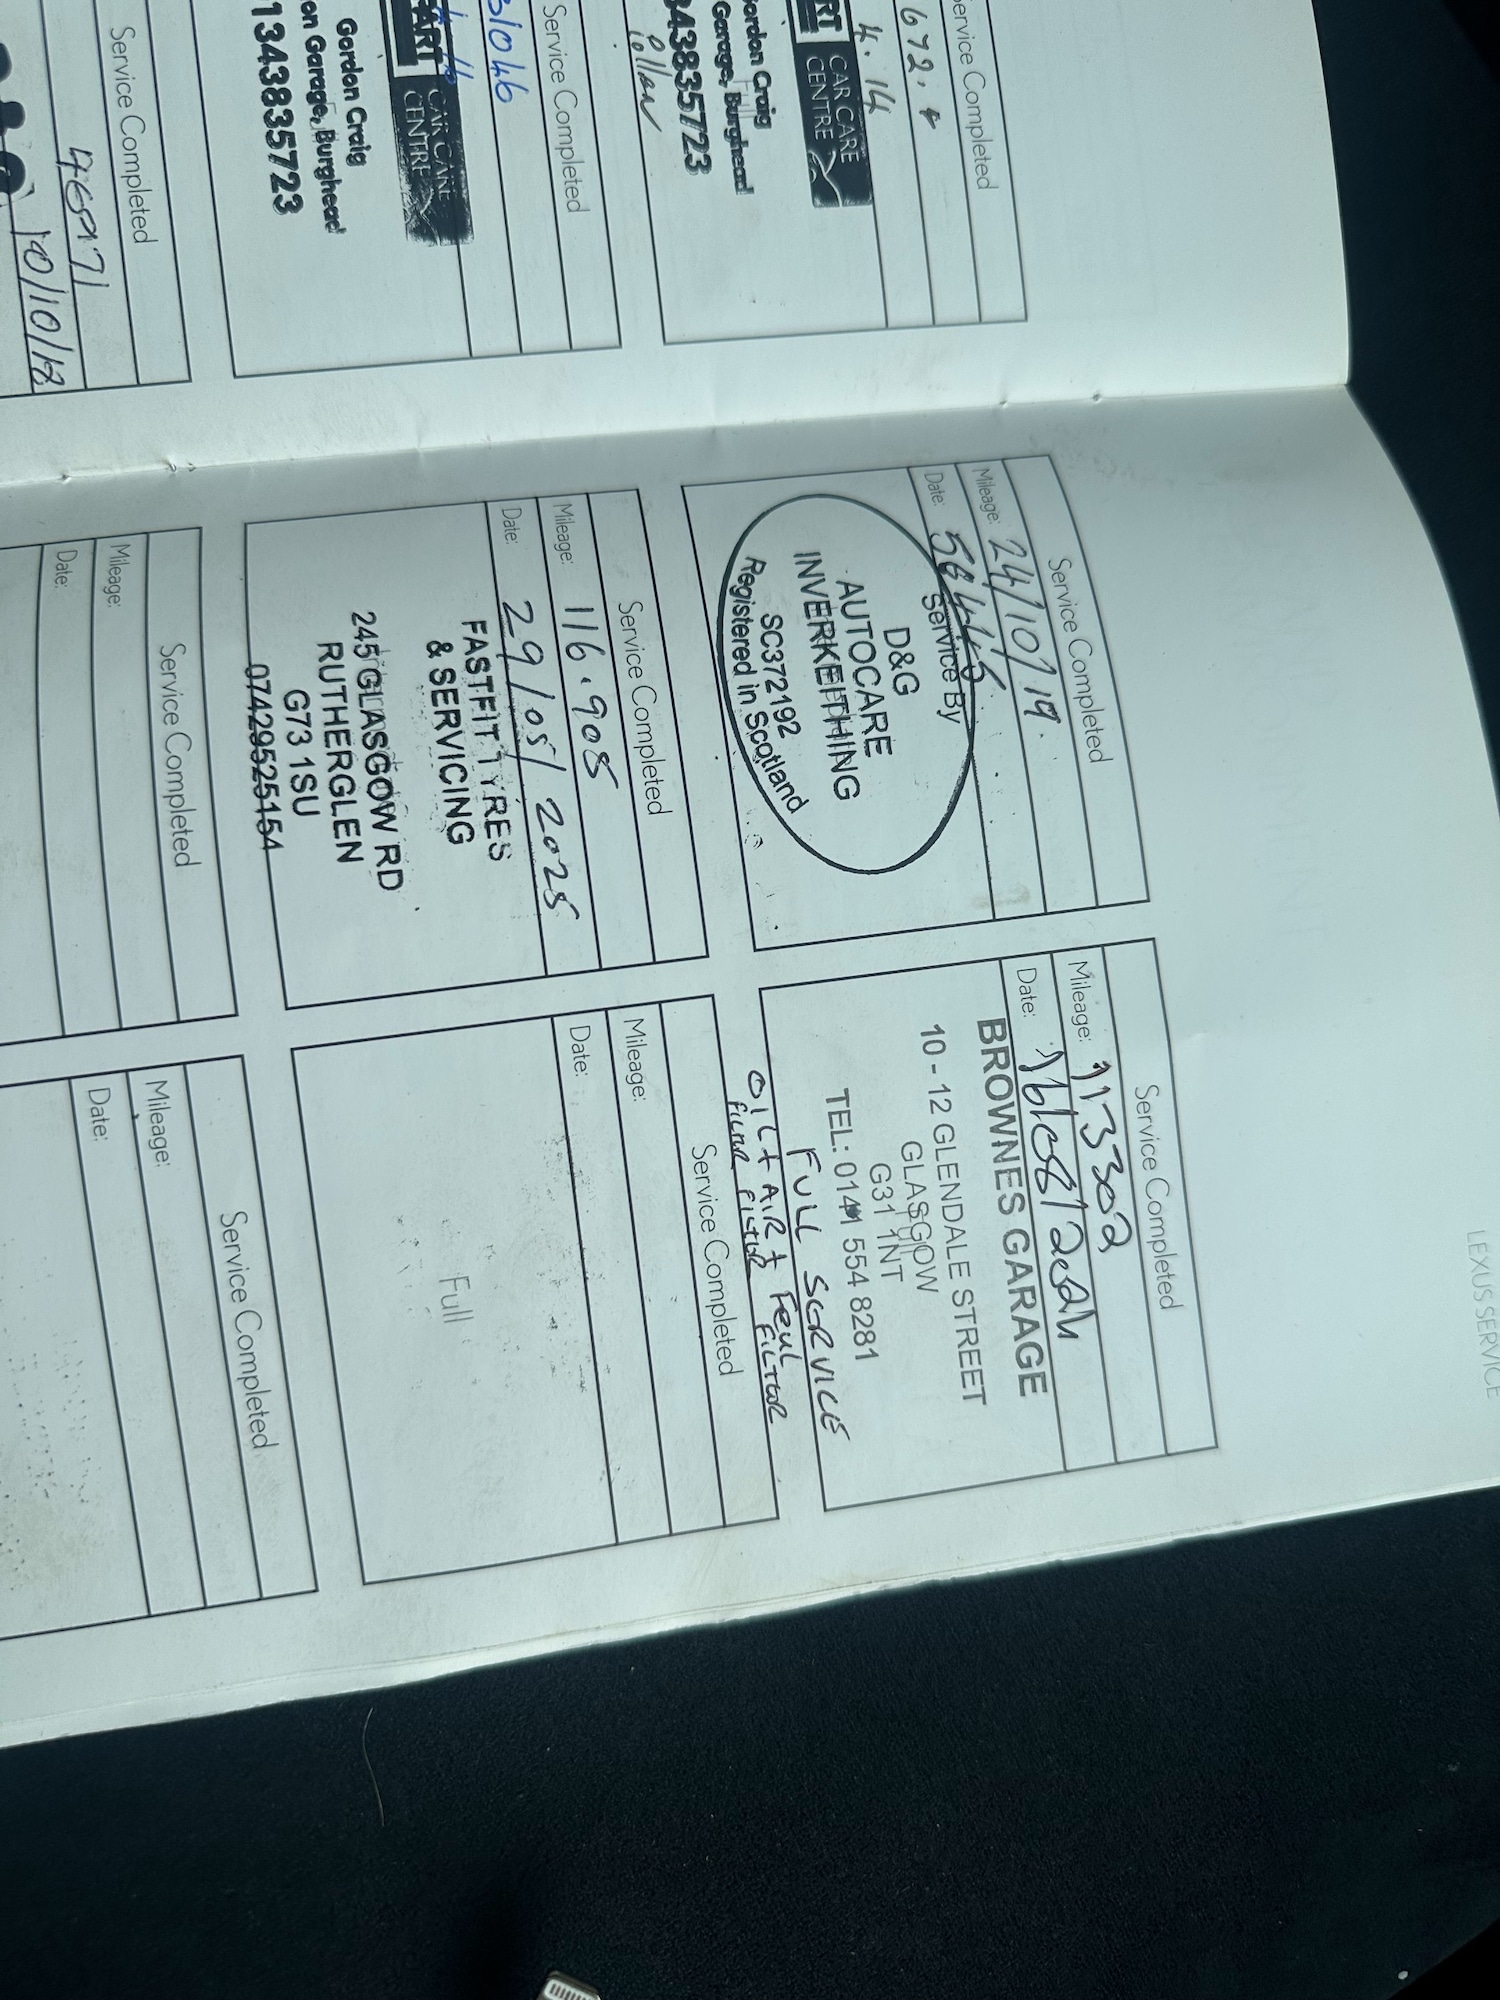 LEXUS SERVICE
Service Completed
672.
4. 14
RT CAR CARE
CENTRE
Gordon Craig
Garage, Burghead
843835723
Pollen
Service Completed
31046
ART CAR CARE
CENTRE
Gordon Craig
on Garage, Burghead
1343835723
Service Completed
46971
10/10/18
Service Completed
Mileage: 24/10/19.
Date: 56445
Service By
D&G
AUTOCARE
INVERKEITHING
SC372192
Registered in Scotland
Service Completed
Mileage: 113302
Date:
BROWNES GARAGE
10 - 12 GLENDALE STREET
GLASGOW
G31 1NT
TEL: 0141 554 8281
FULL SERVICE
OIL + AIR + FEUL
FILTER FILTER FILTER
Service Completed
Mileage: 116.905
Date: 29/05/2025
FASTFIT TYRES
& SERVICING
245 GLASGOW RD
RUTHERGLEN
G73 1SU
07429525154
Service Completed
Mileage:
Date:
Full
Service Completed
Mileage:
Date:
Service Completed
Mileage:
Date: